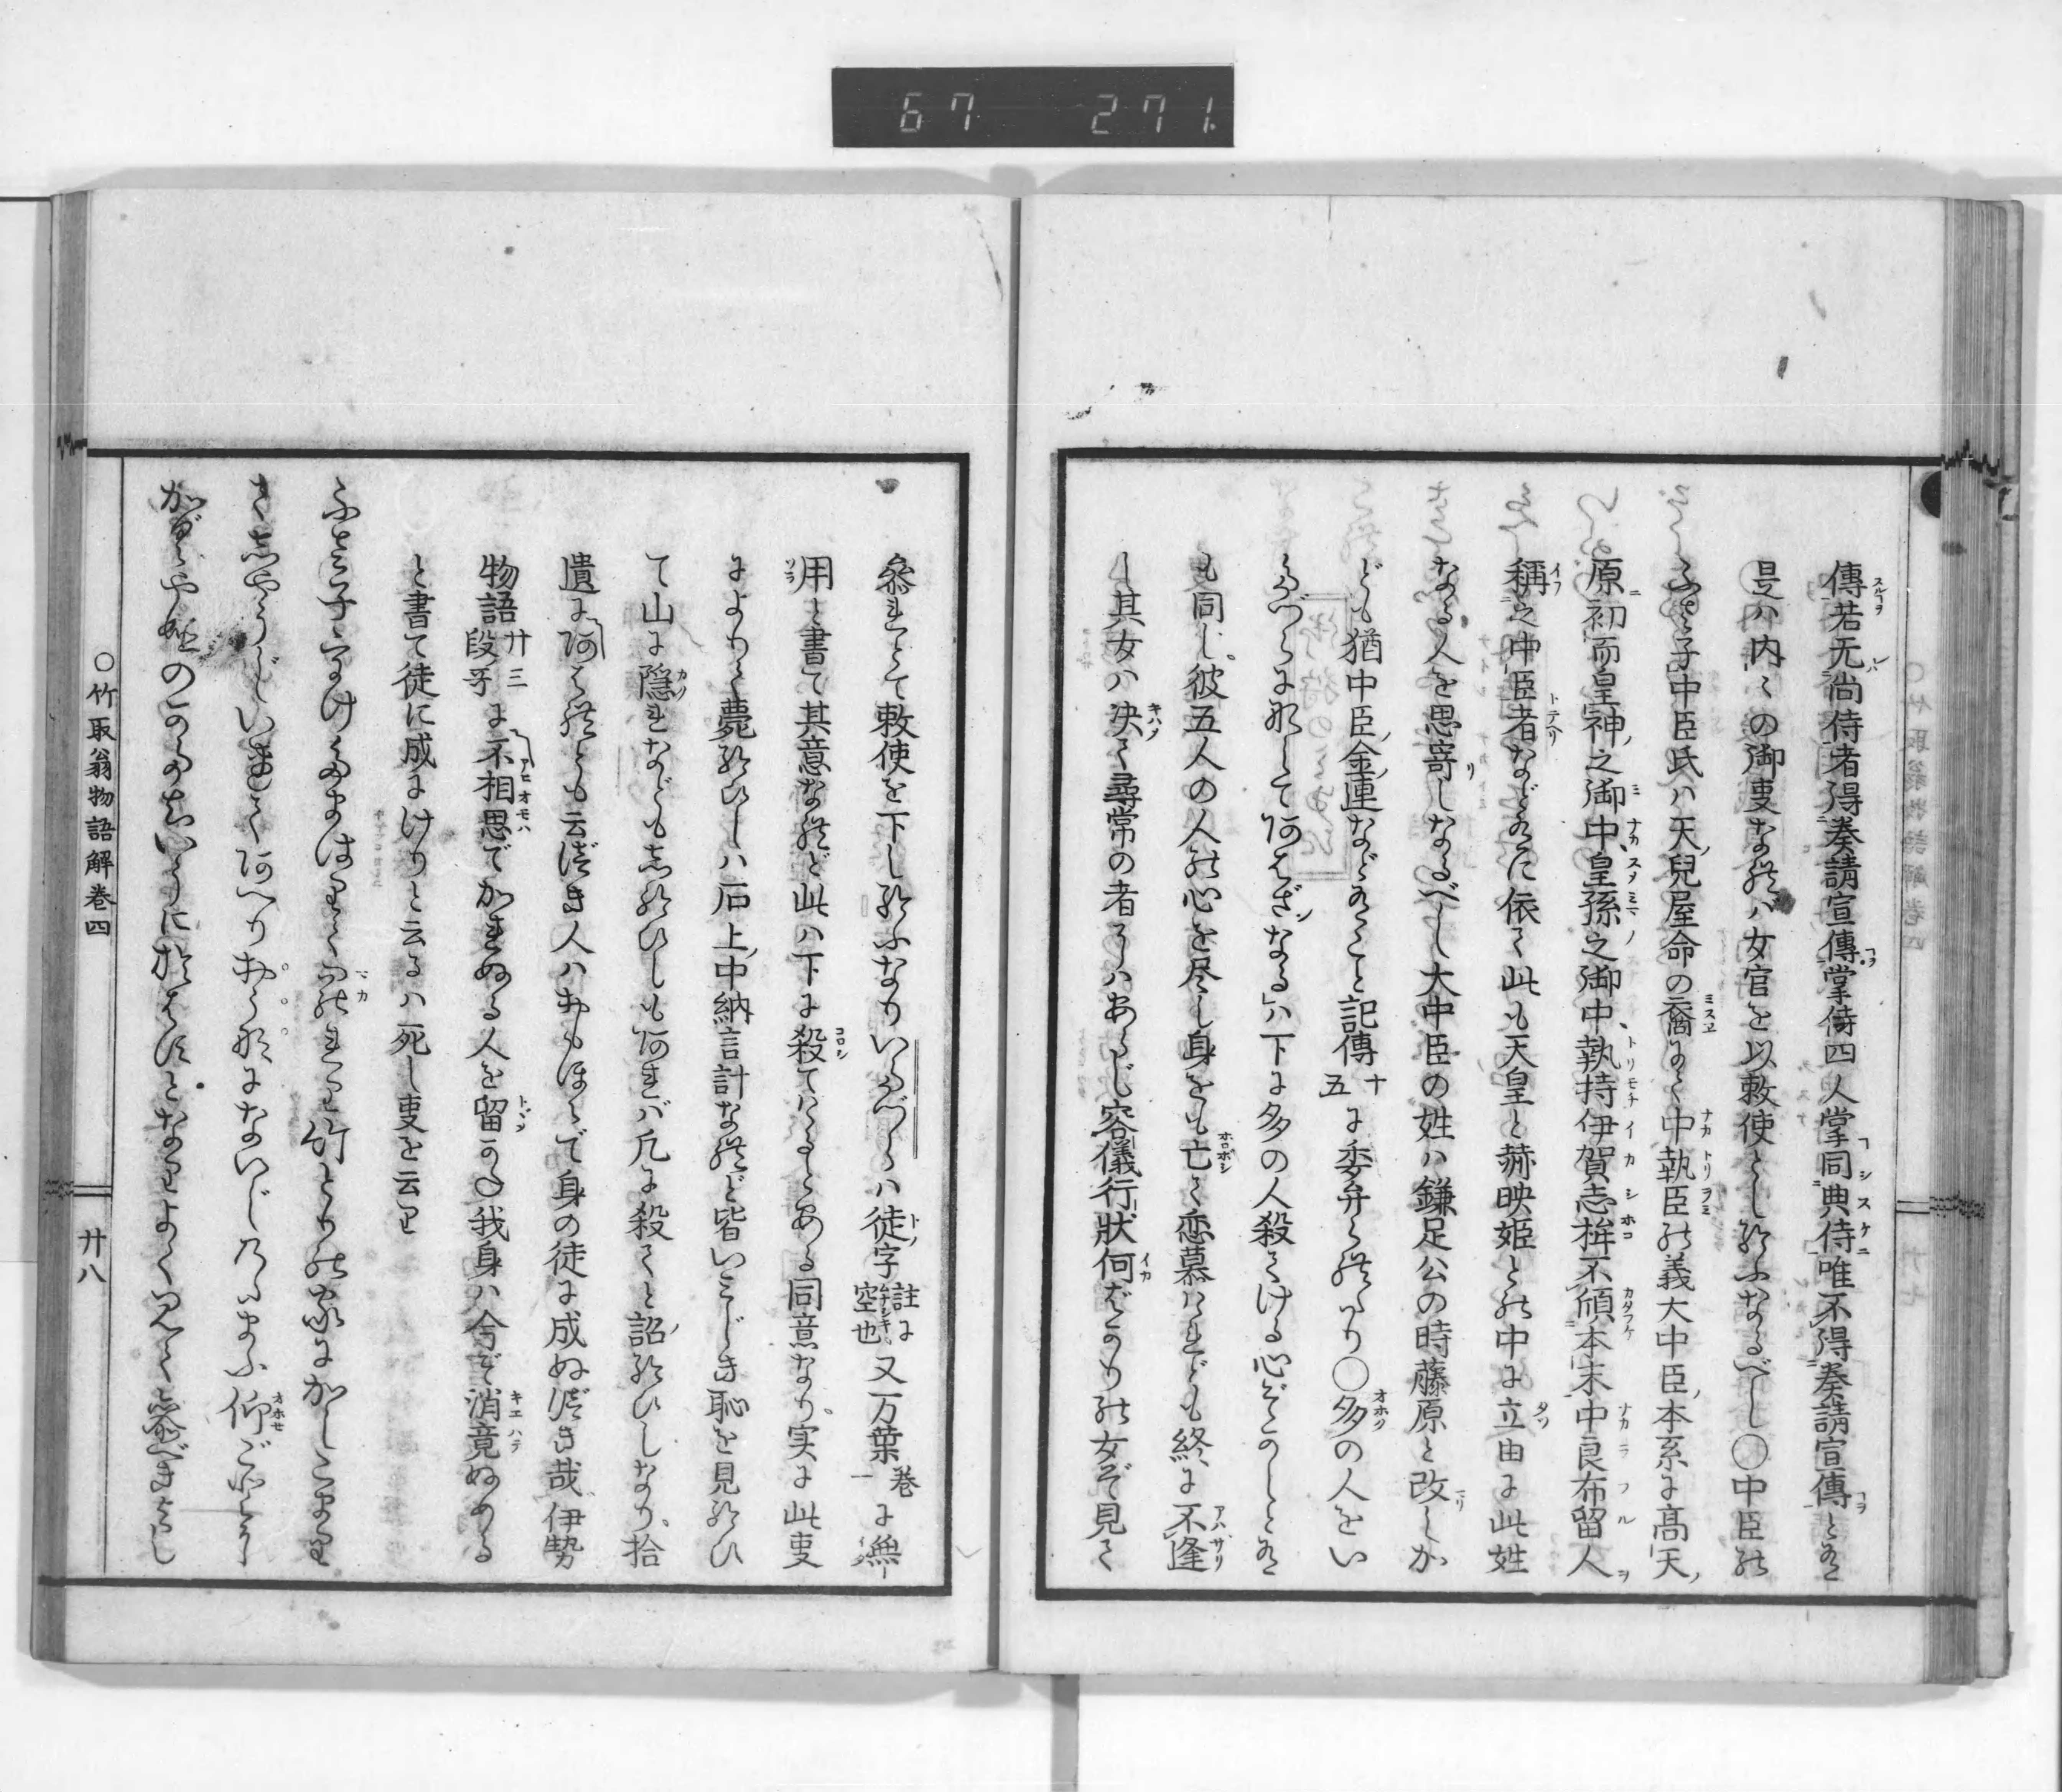 67 271
傳若无尚侍者得奏請宣傳掌侍四人掌同典侍唯不得奏請宣傳とある
是ハ内々の御事なれバ女官を以敕使とし給ふなるべし○中臣の
ふさ子中臣氏ハ天兒屋命の裔にて中執臣の義大中臣本系に高天
原初而皇神之御中皇孫之御中執持伊賀志桙不傾本末中良布留人
稱之中臣者などあるに依て此も天皇と赫映姫との中に立由に此姓
なる人を思寄しなるべし大中臣の姓ハ鎌足公の時藤原と改しか
ども猶中臣金連などあること記傳十五に委弁られたり○多の人をい
たづらに那してあはざなるハ下に多の人殺てける心ぞかしとある
も同じ彼五人の人の心を尽し身をも亡て恋慕けれども終に不逢
し其女ハ決て尋常の者にハあらじ容儀行狀何ばかりの女ぞ見て
参れとて敕使を下し給ふなりいたづらハ徒字註に空也又万葉巻一に無
用と書て其意なれど此ハ下に殺てけるとある同意なり実に此事
によりて薨給ひしハ石上中納言計なれど皆いみじき恥を見給ひ
て山に隠れなども志給ひしも阿れバ凡に殺てと詔給ひしなり拾
遺に阿はれとも云べき人ハおもほえで身の徒に成ぬべき哉伊勢
物語廿三段に不相思でかれぬる人を留かね我身ハ今ぞ消竟ぬめる
と書て徒に成にけりと云るハ死し事を云り
ふさ子うけたまはりてまかれり竹とりの家にかしこまり
て志やうじいれてあへりおうなにないしのたまふ仰ごとに
かぐや姫のかたちいうにおはすとなりよく見て參べきよし
○竹取翁物語解巻四
廿八